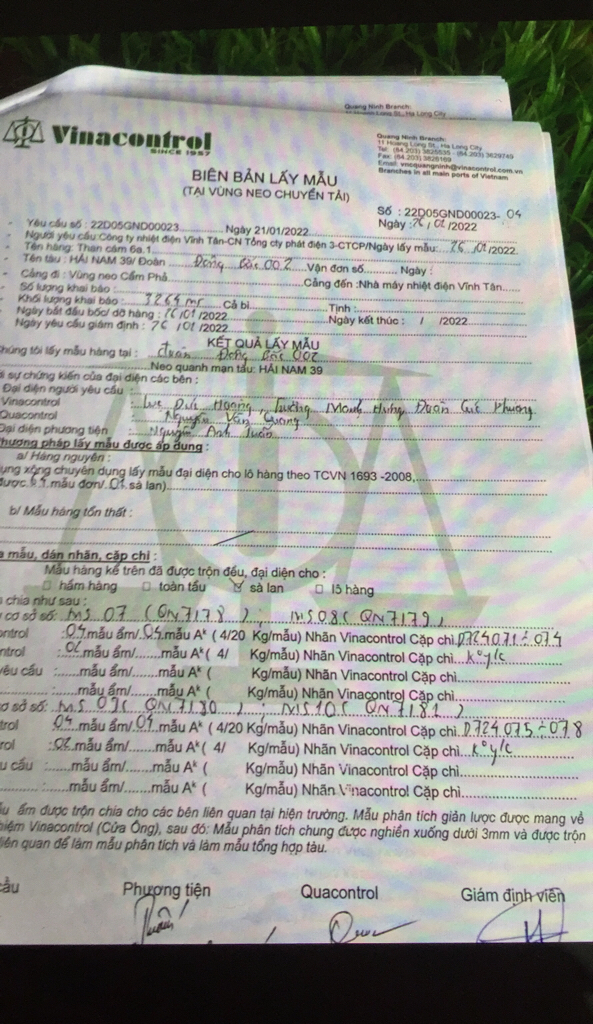 Quang Ninh Branch:
Vinacontrol
SINCE 1957
Quang Ninh Branch:
11 Hoang Long St., Ha Long City
Tel: (84.203) 3825535 - (84.203) 3829749
Fax: (84.203) 3826169
Email: vncquangninh@vinacontrol.com.vn
Branches in all main ports of Vietnam
BIÊN BẢN LẤY MẪU
(TẠI VÙNG NEO CHUYỂN TẢI)
Số : 22D05GND00023- 04
Ngày : 26 / 01 /2022
- Yêu cầu số : 22D05GND00023 Ngày 21/01/2022
- Người yêu cầu:Công ty nhiệt điện Vĩnh Tân-CN Tổng cty phát điện 3-CTCP/Ngày lấy mẫu: 26 /01 /2022
- Tên hàng: Than cám 6a.1
- Tên tàu : HẢI NAM 39/ Đoàn Đông Bắc 002 Vận đơn số Ngày :
- Cảng đi : Vùng neo Cẩm Phả Cảng đến :Nhà máy nhiệt điện Vĩnh Tân
- Số lượng khai báo :
- Khối lượng khai báo : 3264 Cả bì Tịnh :
- Ngày bắt đầu bốc/ dỡ hàng : 26 / 01 /2022 Ngày kết thúc : / /2022
- Ngày yêu cầu giám định : 26 / 01 /2022
KẾT QUẢ LẤY MẪU
húng tôi lấy mẫu hàng tại : đoàn Đông Bắc 002
Neo quanh mạn tầu: HẢI NAM 39
sự chứng kiến của đại diện các bên :
Đại diện người yêu cầu :
Vinacontrol : Đức Hoàng, Mạnh Hưng Đoàn Phương
Quacontrol : Nguyễn Văn
Đại diện phương tiện : Nguyễn Anh Tuấn
hương pháp lấy mẫu được áp dụng :
a/ Hàng nguyên :
ụng xộng chuyên dụng lấy mẫu đại diện cho lô hàng theo TCVN 1693 -2008,
được mẫu đơn/ 01 sà lan)
b/ Mẫu hàng tổn thất :
a mẫu, dán nhãn, cặp chì :
Mẫu hàng kể trên đã được trộn đều, đại diện cho :
□ hầm hàng □ toàn tầu ☑ sà lan □ lô hàng
chia như sau :
cơ sở số: MS 07 ( QN7178 ) ; MS08( QN7179 )
ontrol :04 mẫu ẩm/ 04 mẫu Aᵏ ( 4/20 Kg/mẫu) Nhãn Vinacontrol Cặp chì D724071÷074
ntrol : 02 mẫu ẩm/ mẫu Aᵏ ( 4/ Kg/mẫu) Nhãn Vinacontrol Cặp chì K° y/c
yêu cầu : mẫu ẩm/ mẫu Aᵏ ( Kg/mẫu) Nhãn Vinacontrol Cặp chì
: mẫu ẩm/ mẫu Aᵏ ( Kg/mẫu) Nhãn Vinacontrol Cặp chì
ơ sở số: MS 09( QN7180 ) ; MS10( QN7181 )
trol :04 mẫu ẩm/ 04 mẫu Aᵏ ( 4/20 Kg/mẫu) Nhãn Vinacontrol Cặp chì D724075÷078
rol :02 mẫu ẩm/ mẫu Aᵏ ( 4/ Kg/mẫu) Nhãn Vinacontrol Cặp chì K° y/c
u cầu : mẫu ẩm/ mẫu Aᵏ ( Kg/mẫu) Nhãn Vinacontrol Cặp chì
: mẫu ẩm/ mẫu Aᵏ ( Kg/mẫu) Nhãn Vinacontrol Cặp chì
ẫu ẩm được trộn chia cho các bên liên quan tại hiện trường. Mẫu phân tích giản lược được mang về
hiệm Vinacontrol (Cửa Ông), sau đó: Mẫu phân tích chung được nghiền xuống dưới 3mm và được trộn
liên quan để làm mẫu phân tích và làm mẫu tổng hợp tàu.
cầu Phương tiện Quacontrol Giám định viên